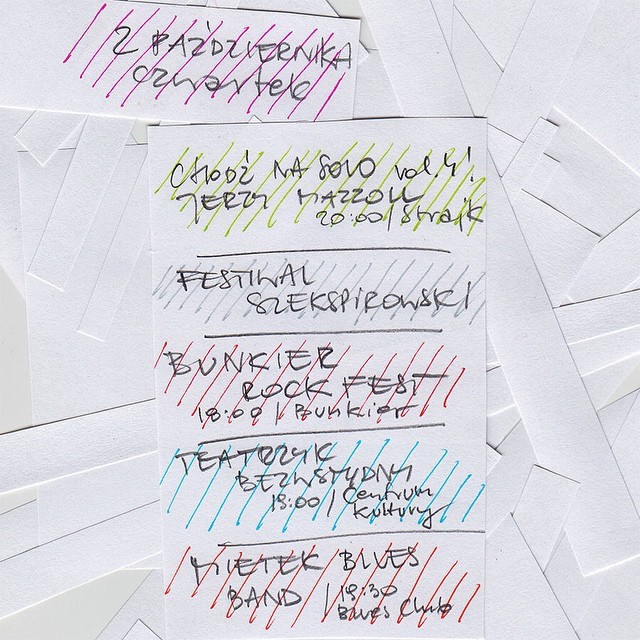 2 PAŹDZIERNIKA
czwartek
CHODŹ NA SOLO vol. 4!
JERZY MAZZOLL
20:00 / Strajk
FESTIWAL
SZEKSPIROWSKI
BUNKIER
ROCK FEST
18:00 / Bunkier
TEATRZYK
BEZWSTYDNY
19:00 / Centrum
Kultury
MIETEK BLUES
BAND / 19:30
Blues Club